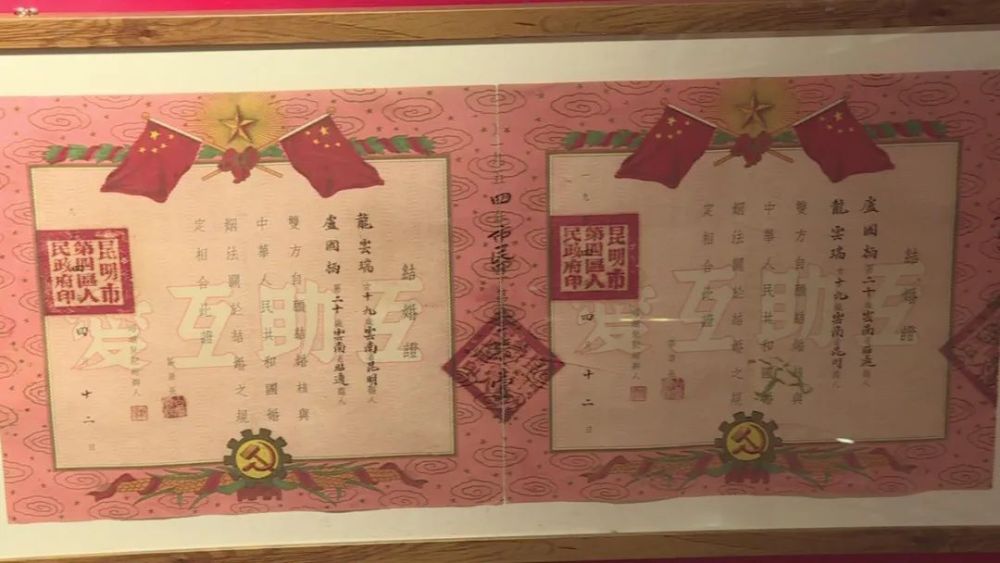 結婚證
盧國柄 二十歲雲南省昭通縣人
龍雲瑞 女十九歲雲南省昆明縣人
雙方自願結婚核與
中華人民共和國婚
姻法關於結婚之規
定相合此證
一九 四 十二日
昆明市
第四區人
民政府印
互助互愛
結婚證
龍雲瑞 女十九歲雲南省昆明縣人
盧國柄 二十歲雲南省昭通縣人
雙方自願結婚核與
中華人民共和國婚
姻法關於結婚之規
定相合此證
四 十二日
昆明市
第四區人
民政府印
互助互愛